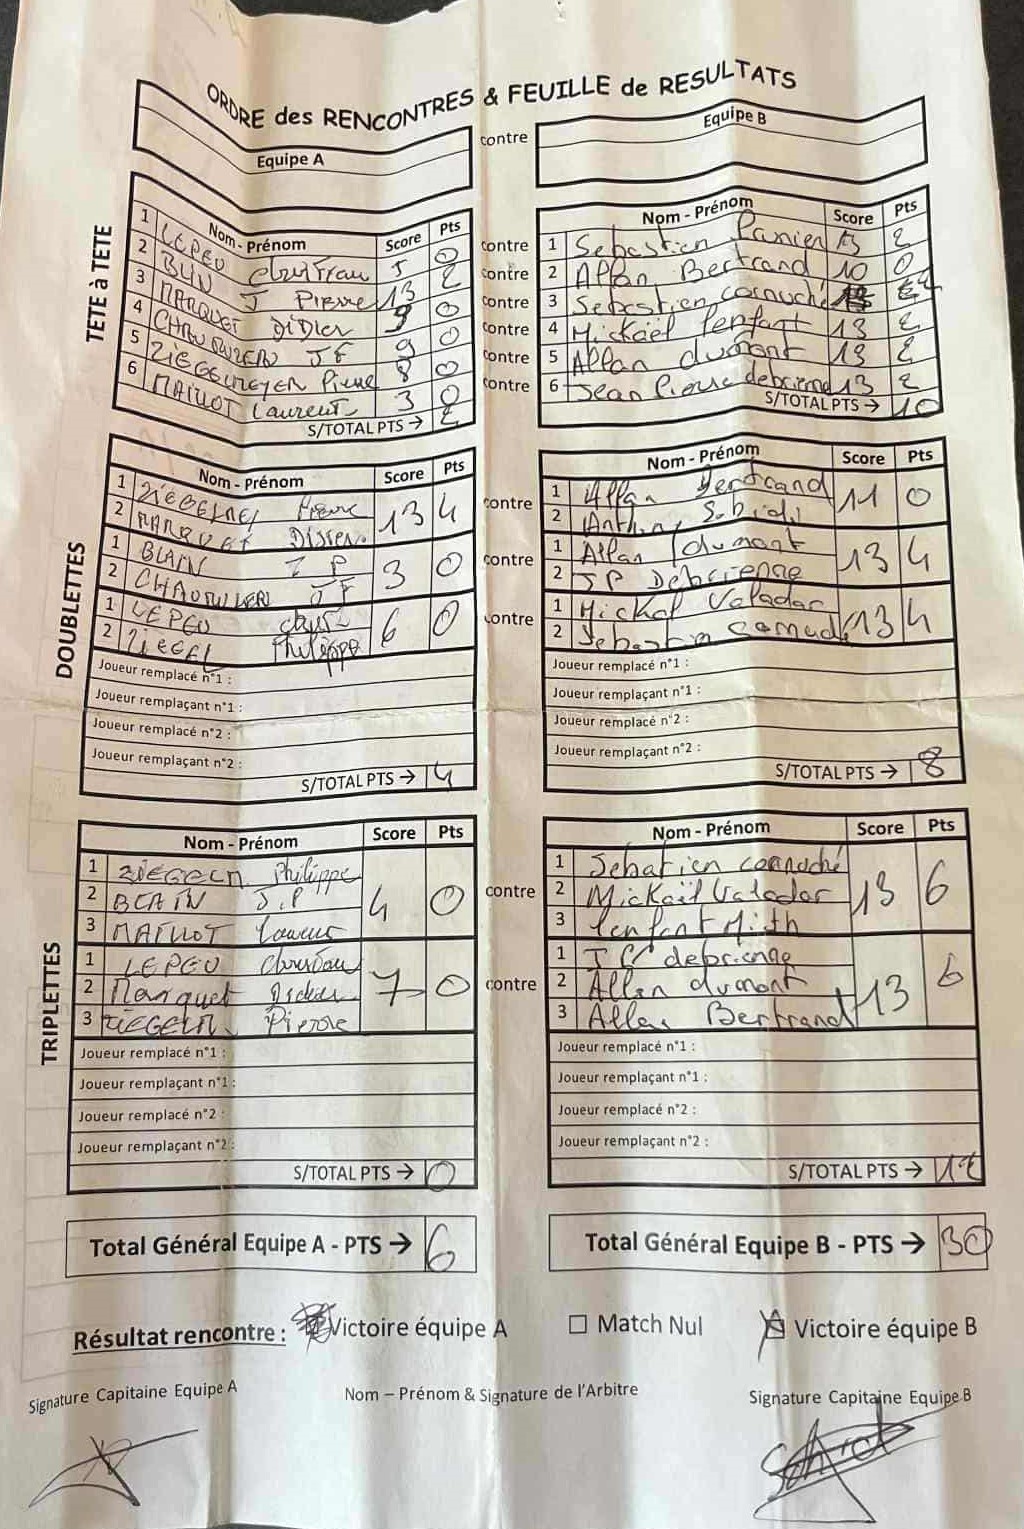 ORDRE des RENCONTRES & FEUILLE de RESULTATS
Equipe A contre Equipe B
TETE à TETE
Nom - Prénom Score Pts
1 LEPEU 5 0
2 J Pierre 13 2
3 MARQUET DiDier 9 0
4 JF 9 0
5 Pierre 8 0
6 MAILLOT Laurent 3 0
S/TOTAL PTS → 2
contre
contre
contre
contre
contre
contre
Nom - Prénom Score Pts
1 Sebastien Panier 13 2
2 Allan Bertrand 10 0
3 Sebastien cornuché
4 Mickaël lenfant 13 2
5 Allan dumont 13 2
6 Jean Pierre debrienne 13 2
S/TOTAL PTS → 10
DOUBLETTES
Nom - Prénom Score Pts
1 Pierre 13 4
2 MARQUET
1 J P 3 0
2 JF
1 LEPEU 6 0
2 ZIEGEL Philippe
Joueur remplacé n°1 :
Joueur remplaçant n°1 :
Joueur remplacé n°2 :
Joueur remplaçant n°2 :
S/TOTAL PTS → 4
contre
contre
contre
Nom - Prénom Score Pts
1 Allan Bertrand 11 0
2
1 Allan dumont 13 4
2 JP Debrienne
1 Mickaël Valadar 13 4
2 Sebastien
Joueur remplacé n°1 :
Joueur remplaçant n°1 :
Joueur remplacé n°2 :
Joueur remplaçant n°2 :
S/TOTAL PTS → 8
TRIPLETTES
Nom - Prénom Score Pts
1 Philippe 4 0
2 J.P
3 MAILLOT Laurent
1 LEPEU 7 0
2 Marquet
3 Pierre
Joueur remplacé n°1 :
Joueur remplaçant n°1 :
Joueur remplacé n°2 :
Joueur remplaçant n°2 :
S/TOTAL PTS → 0
contre
contre
Nom - Prénom Score Pts
1 Sebatien cornuché 13 6
2 Mickaël Valadar
3 lenfant
1 debrienne 13 6
2 Allan dumont
3 Allan Bertrand
Joueur remplacé n°1 :
Joueur remplaçant n°1 :
Joueur remplacé n°2 :
Joueur remplaçant n°2 :
S/TOTAL PTS → 12
Total Général Equipe A - PTS → 6
Total Général Equipe B - PTS → 30
Résultat rencontre : Victoire équipe A Match Nul Victoire équipe B
Signature Capitaine Equipe A Nom – Prénom & Signature de l'Arbitre Signature Capitaine Equipe B